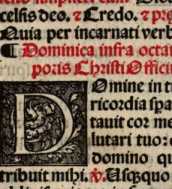 celsis deo. ⁊ Credo. ⁊ pre
Quia per incarnati verb
¶ Dominica infra octau
poris Christi Offici
Domine in t
ricordia spa
tauit cor me
lutari tuo: c
domino qu
tribuit mihi. ℣. Usquequo